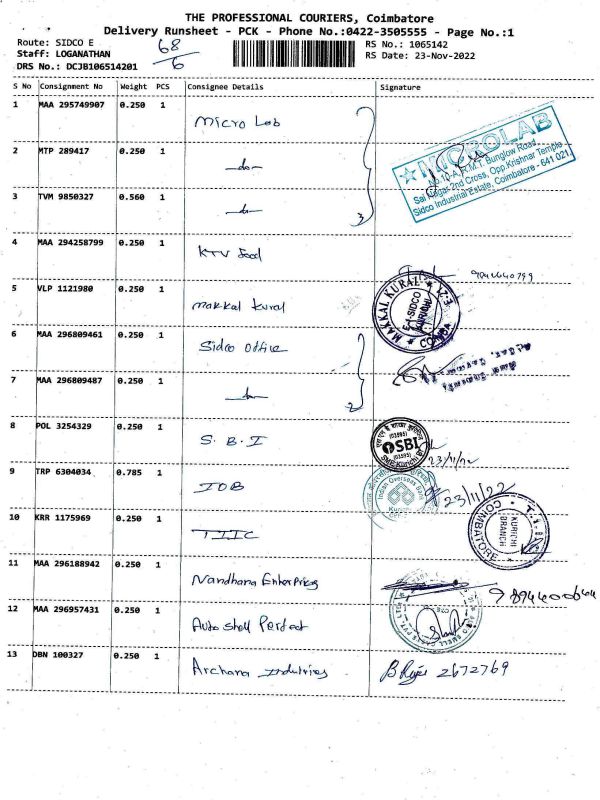 THE PROFESSIONAL COURIERS, Coimbatore
Delivery Runsheet - PCK - Phone No.:0422-3505555 - Page No.:1
Route: SIDCO E
Staff: LOGANATHAN
DRS No.: DCJB106514201
68/6
RS No.: 1065142
RS Date: 23-Nov-2022
S No Consignment No Weight PCS Consignee Details Signature
1 MAA 295749907 0.250 1 Micro Lab
2 MTP 289417 0.250 1 —do—
3 TVM 9850327 0.560 1 —do—
3
MICROLAB
No.10-A, R.M.T. Bunglow Road
Sai Nagar 2nd Cross, Opp.Krishnar Temple
Sidco Industrial Estate, Coimbatore - 641 021
4 MAA 294258799 0.250 1 KTV food
5 VLP 1121980 0.250 1 Makkal Kural
MAKKAL KURAL
SIDCO
KURICHI
6 MAA 296809461 0.250 1 Sidco Office
7 MAA 296809487 0.250 1 —do—
2
8 POL 3254329 0.250 1 S.B.I
SBI
(03595)
SME Kurichi
23/11/22
9 TRP 6304034 0.785 1 IOB
Indian Overseas Bank
23/11/22
10 KRR 1175969 0.250 1 TIIC
KURICHI
BRANCH
COIMBATORE
11 MAA 296188942 0.250 1 Nandhana Enterprises
12 MAA 296957431 0.250 1 Auto Shell Perfect
13 DBN 100327 0.250 1 Archana Industries 2672769